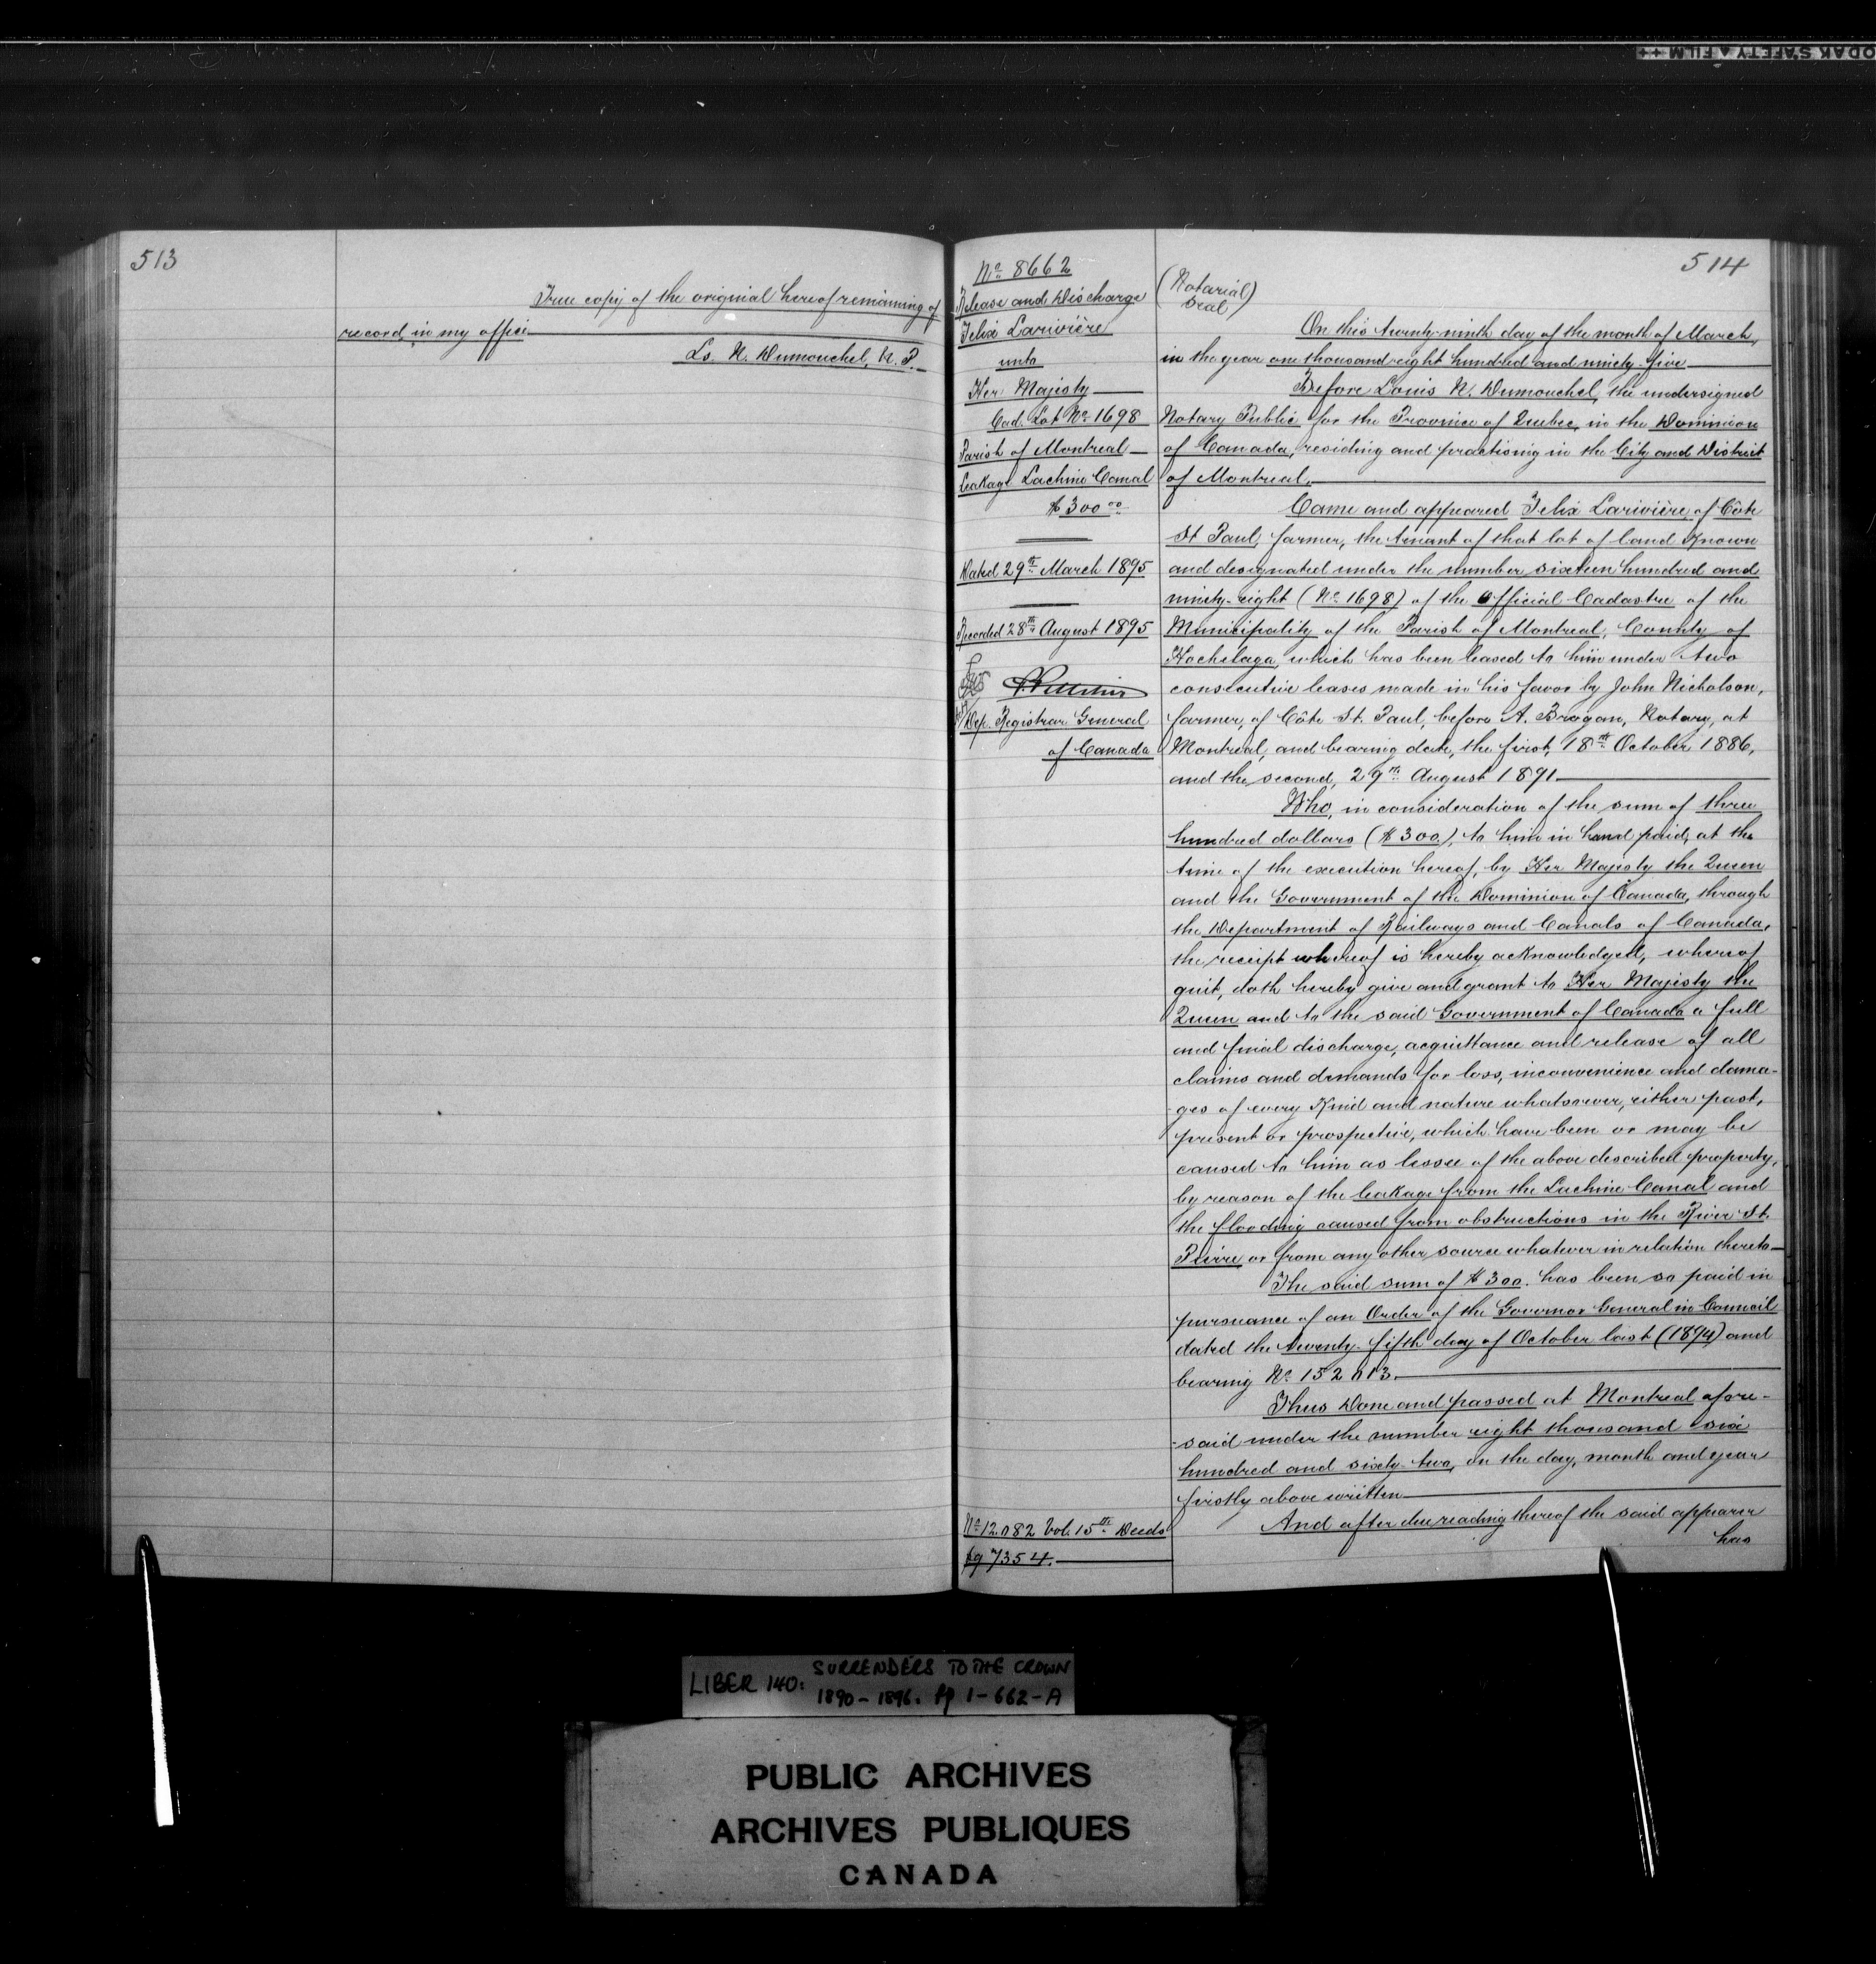 ODAK SAFETY ▲ FILM ++
513
True copy of the original hereof remaining of
record in my office
Ls. N. Dumouchel, N. P.
No 8662
Release and Discharge
Felix Larivière
unto
Her Majesty
Cad. Lot No 1698
Parish of Montreal
leakage Lachine Canal
$300 00
Dated 29th March 1895
Recorded 28th August 1895
Dep. Registrar General
of Canada
No 12082 Vol. 15th Deeds
pg 7354.
514
(Notarial
Seal)
On this twenty-ninth day of the month of March,
in the year one thousand eight hundred and ninety-five
Before Louis N. Dumouchel, the undersigned
Notary Public for the Province of Quebec, in the Dominion
of Canada, residing and practising in the City and District
of Montreal.
Came and appeared Felix Larivière of Côte
St Paul, farmer, the tenant of that lot of land Known
and designated under the number sixteen hundred and
ninety-eight (No 1698) of the Official Cadastre of the
Municipality of the Parish of Montreal, County of
Hochelaga, which has been leased to him under two
consecutive leases made in his favor by John Nicholson,
farmer, of Côte St. Paul, before A. Brogan, Notary, at
Montreal, and bearing date, the first, 18th October 1886,
and the second, 29th August 1891
Who, in consideration of the sum of three
hundred dollars ($300.), to him in hand paid, at the
time of the execution hereof, by Her Majesty the Queen
and the Government of the Dominion of Canada, through
the Department of Railways and Canals of Canada,
the receipt whereof is hereby acknowledged, whereof
quit, doth hereby give and grant to Her Majesty the
Queen and to the said Government of Canada a full
and final discharge, acquittance and release of all
claims and demands for loss, inconvenience and dama-
-ges of every Kind and nature whatsoever, either past,
present or prospective, which have been or may be
caused to him as lessee of the above described property,
by reason of the leakage from the Lachine Canal and
the flooding caused from obstructions in the River St.
Pierre or from any other source whatever in relation thereto
The said sum of $300. has been so paid in
pursuance of an Order of the Governor General in Council
dated the twenty-fifth day of October last (1894) and
bearing No 152013.
Thus Done and passed at Montreal afore-
-said under the number eight thousand six
hundred and sixty-two, on the day, month and year
firstly above written
And after due reading thereof the said appearer
has
LIBER 140: SURRENDERS TO THE CROWN
1890-1896. pp 1-662-A
PUBLIC ARCHIVES
ARCHIVES PUBLIQUES
CANADA